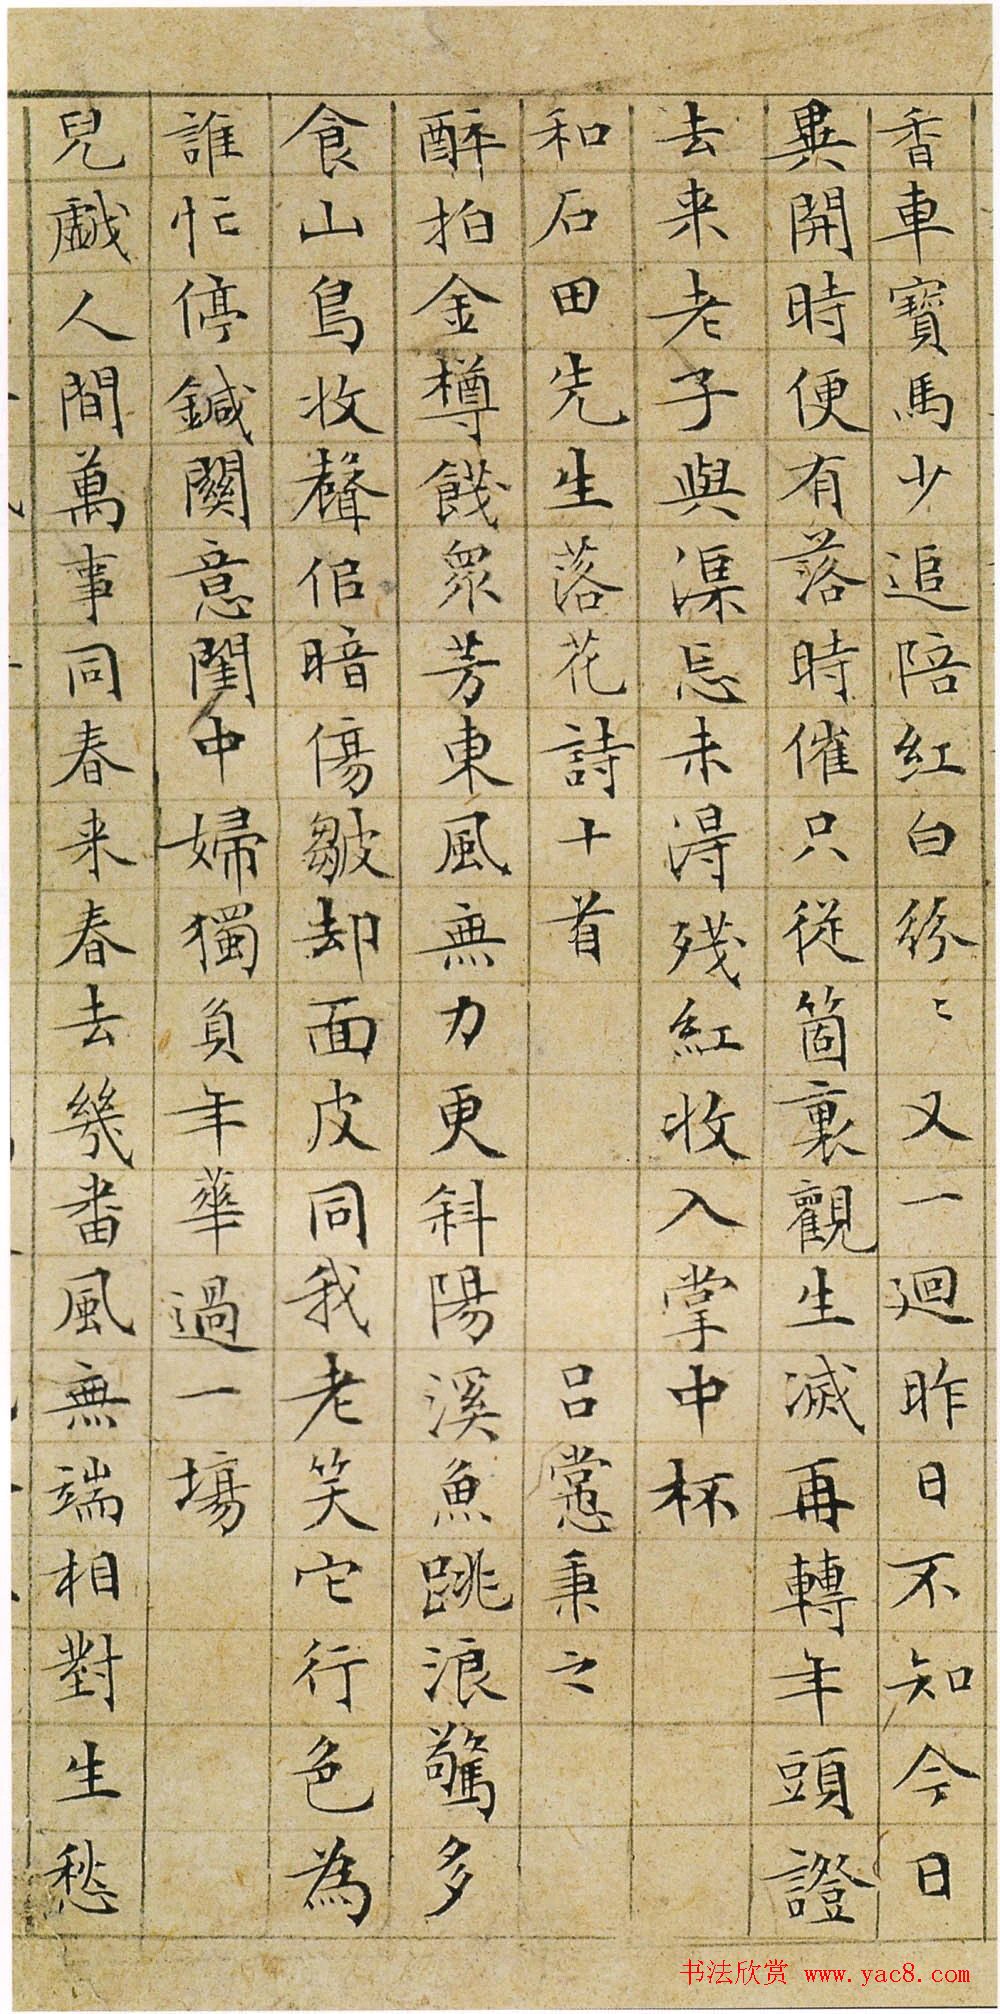 香車寶馬少追陪紅白紛〻又一迴昨日不知今日
異開時便有落時催只從箇裏觀生滅再轉年頭證
去来老子與渠忘未得殘紅收入掌中杯
和石田先生落花詩十首 吕㦂秉之
醉拍金樽餞眾芳東風無力更斜陽溪魚跳浪驚多
食山鳥收聲倍暗傷皺却面皮同我老笑它行色為
誰忙停鍼闗意閨中婦獨負年華過一塲
兒戯人間萬事同春来春去幾番風無端相對生愁
书法欣赏 www.yac8.com